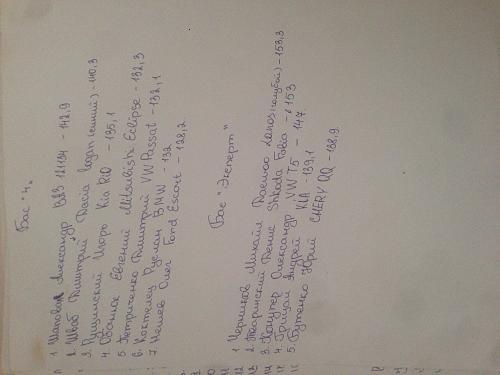 Бас "4"
1 Шаповал Александр ВАЗ 21134 - 142,9
2. Швед Дмитрий Dacia Logan (синий) - 140,3
3. Пушинский Игорь Kia Rio - 135,1
4. Евгений Mitsubishi Eclipse - 132,3
5 Петриченко Дмитрий VW Passat - 132,1
6. Коктелец Руслан BMW - 132
7 Нешев Олег Ford Escort - 128,2
Бас "Эксперт"
1 Черников Михайл Daewoo Lanos (голубой) - 153,3
2. Тваринский Денис Shkoda Fabia - 153
3. Александр VW T5 - 147
4. Грицай Андрей KIA - 139,1
5. Бутенко Юрий CHERY QQ - 138,9